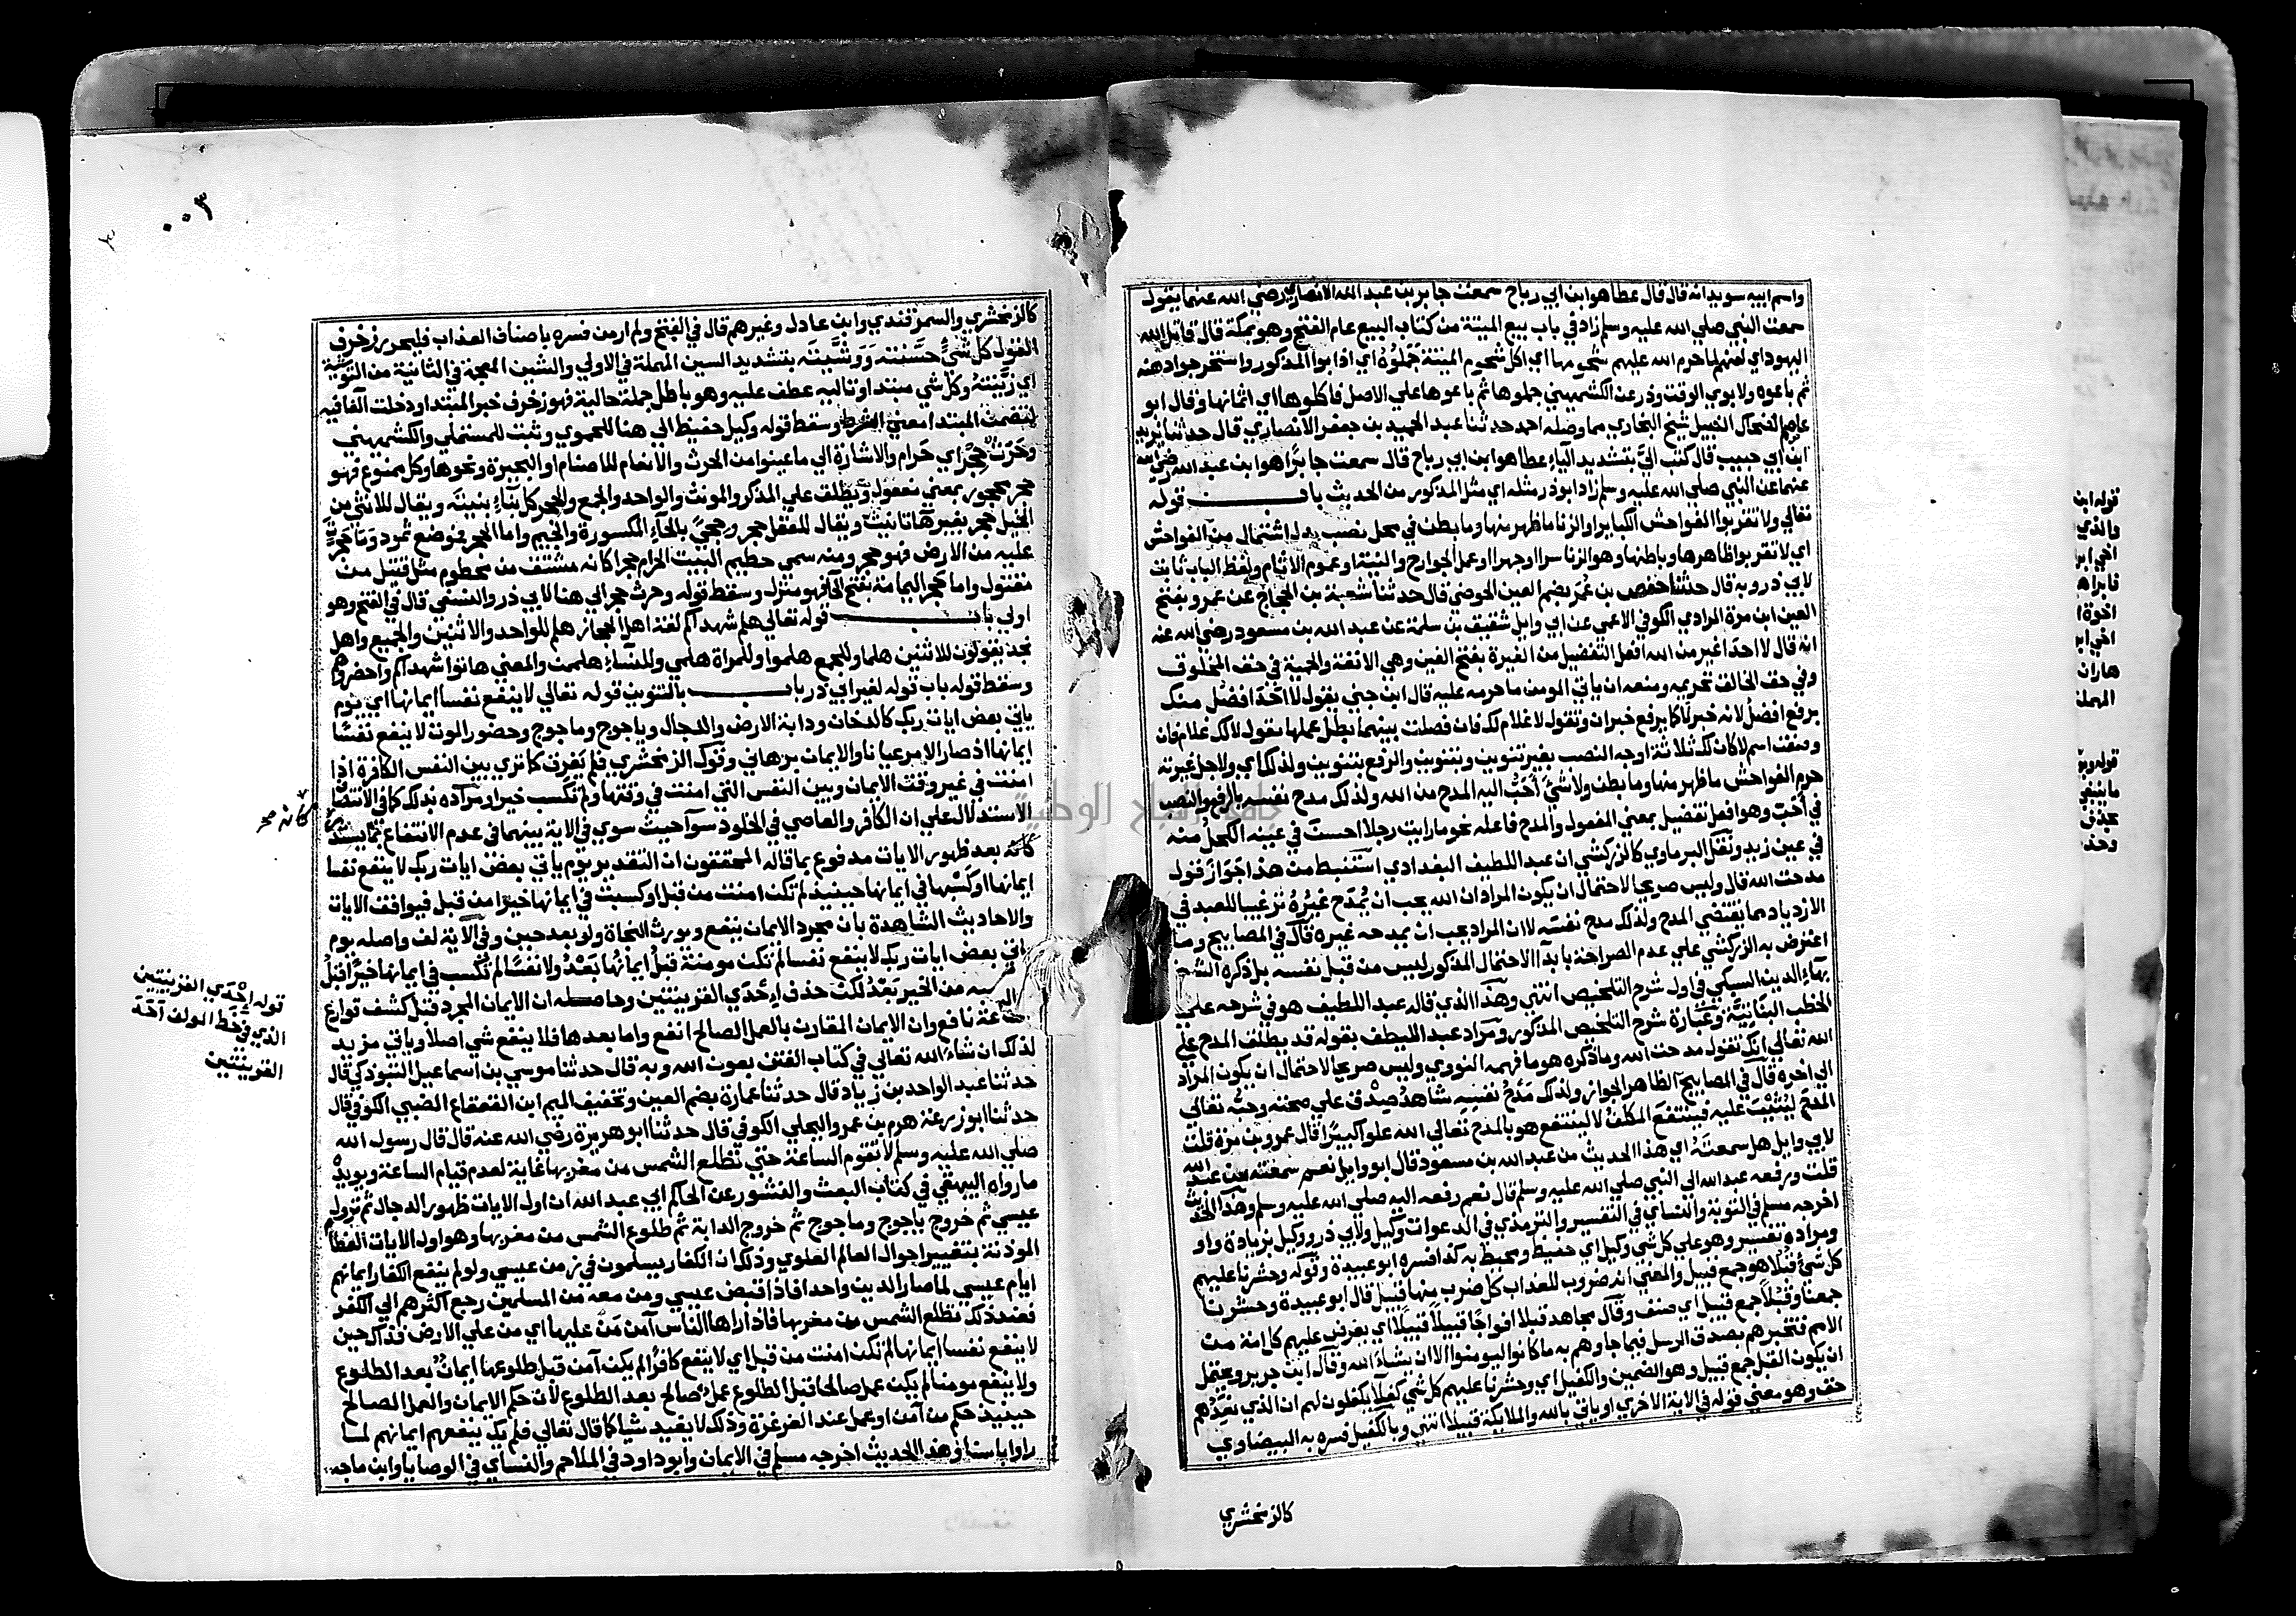 واسم ابيه سويد انه قال قال عطا هو ابن ابي رباح سمعت جابر بن عبد الله الانصاري رضي الله عنهما يقول
سمعت النبي صلي الله عليه وسلم زاد في باب بيع الميتة من كتاب البيع عام الفتح وهو بمكة قال قاتل الله
اليهود اي لعنهم لما حرم الله عليهم شحومها اي اكل شحوم الميتة جملوه اي اذابوا المذكور واستخرجوا دهنه
ثم باعوه ولابوي الوقت وذر عن الكشميهني جملوها ثم باعوها علي الاصل فاكلوها اي اثمانها وقال ابو
عاصم الضحاك النبيل شيخ البخاري مما وصله احمد حدثنا عبد الحميد بن جعفر الانصاري قال حدثنا يزيد
ابن ابي حبيب قال كتب اليّ بتشديد الياء عطا هو ابن ابي رباح قال سمعت جابرا هو ابن عبد الله رضي الله
عنهما عن النبي صلي الله عليه وسلم زاد ابو ذر مثله اي مثل المذكور من الحديث باب قوله
تعالي ولا تقربوا الفواحش الكباير او الزنا ما ظهر منها وما بطن في محل نصب بدل اشتمال من الفواحش
اي لا تقربوا ظاهرها وباطنها وهو الزنا سرا او جهرا او عمل الجوارح والنية او عموم الاثام ولفظ الباب ثابت
لابي ذر وبه قال حدثنا حفص بن عُمَر بضم العين الحوضي قال حدثنا شعبة بن الحجاج عن عمرو بفتح
العين ابن مرة المرادي الكوفي الاعمي عن ابي وايل شقيق بن سلمة عن عبد الله بن مسعود رضي الله عنه
انه قال لا احد اغير من الله افعل التفضيل من الغيرة بفتح الغين وهي الانفة والحمية في حق المخلوق
وفي حق الخالق تحريمه ومنعه ان ياتي المومن ما حرمه عليه قال ابن جني يقول لا احد افضل منك
برفع افضل لانه خبر لا كما يرفع خبر ان وتقول لا غلام لك فان فصلت بينهما بطل عملها تقول لا لك غلام فان
وصفت اسم لا كان لك ثلاثة اوجه النصب بغير تنوين وبتنوين والرفع بتنوين ولذلك اي ولاجل غيرته
حرم الفواحش ما ظهر منها وما بطن ولا شيَ احَبُّ اليه المدح من الله ولذلك مدح نفسه بالرفع والنصب
في احَبّ وهو افعل تفضيل بمعني المفعول والمدح فاعله نحو ما رايت رجلا احسن في عينه الكحل منه
في عين زيد ونقل البرماوي كالزركشي ان عبد اللطيف البغدادي استنبط من هذا جَوَازَ قول
مدحت الله قال وليس صريحا لاحتمال ان يكون المراد ان الله يحب ان يُمْدَح غيرُهُ ترغيبا للعبد في
الازدياد مما يقتضي المدح ولذلك مدح نفسه لا ان المراد يحب ان يمدحه غيره قال في المصابيح وما
اعترض به الزركشي علي عدم الصراحة بابدآ الاحتمال المذكور ليس من قبل نفسه بل ذكره الشيخ
بهآء الدين السبكي في اول شرح التلخيص انتهي وهذا الذي قاله عبد اللطيف هو في شرحه علي
الخطب النباتيّة وعبارة شرح التلخيص المذكور ومراد عبد اللطيف بقوله قد يطلق المدح علي
الله تعالي انك تقول مدحت الله وما ذكره هو ما فهمه النووي وليس صريحا لاحتمال ان يكون المراد
الي اخره قال في المصابيح الظاهر الجواز ولذلك مَدَحَ نفسه شاهدُ صِدْق علي صحته وحبّه تعالي
المدح ليُثيْبَ عليه فينتفعَ المكلفُ لا لينتفع هو بالمدح تعالي الله علوا كبيرا قال عمرو بن مرة قلت
لابي وايل هل سمعتَهُ اي هذا الحديث من عبد الله بن مسعود قال ابو وايل نعم سمعته من عبد الله
قلت ورفعه عبد الله الي النبي صلي الله عليه وسلم قال نعم رفعه اليه صلي الله عليه وسلم وهذا الحديث
اخرجه مسلم في التوبة والنساي في التفسير والترمذي في الدعوات وكيل ولابي ذر ووكيل بزيادة واو
ومراده تفسير وهو علي كل شي وكيل اي حفيظ ومحيط به كذا فسره ابو عبيدة وقوله وحشرنا عليهم
كل شيءٍ قُبُلا هو جمع قبيل والمعني انه ضروب للعذاب كل ضرب منها قبيل قال ابو عبيدة وحشرنا
جمعنا وقُبُلا جمع قبيل اي صنف وقال مجاهد قبلا افواجًا قبيلًا قبيلًا اي يعرض عليهم كل امة من
الامم فتخبرهم بصدق الرسل فيما جاوهم به ما كانوا ليومنوا الا ان يشاء الله وقال ابن جرير ويحتمل
ان يكون القبل جمع قبيل وهو الضمين والكفيل اي وحشرنا عليهم كل شي كفيلا يكفلون لهم ان الذي نعِدُهم
حق وهو معني قوله في الاية الاخري او ياتي بالله والملايكة قبيلا انتهي وبالكفيل فسره به البيضاوي
كالزمخشري
قوله ابن
والذي
اخي ابر
اخوة ا
هاران
المهملة
وحذ
٠٠٣
كالزمخشري والسمرقندي وابن عادل وغيرهم قال في الفتح ولم ار من فسره باصناف العذاب فليحرر زخرف
القول كل شيءٍ حَسَّنْتَه وَوَشَّيْتَه بتشديد السين المهملة في الاولي والشين المعجمة في الثانية من التوشية
اي زَيَّنْتَهُ وكل شي مبتدا وتاليه عطف عليه وهو باطل جملة حالية فهو زخرف خبر المبتدا ودخلت الفا فيه
لتضمن المبتدا معني الشرط وسقط قوله وكيل حفيظ الي هنا للحموي وثبت للمستملي والكشميهني
وحَرْثٌ حِجْرٌ اي حرام والاشارة الي ما عينوا من الحرث والانعام للاصنام او البحيرة ونحوها وكل ممنوع فهو
حجر محجور بمعني مفعول ويطلق علي المذكر والمونث والواحد والجمع والحجر كل بناءٍ بنيتَه ويقال للانثي من
الخيل حجر بغير هآ تانيث ويقال للعقل حجر وحِجيً بالحاءِ المكسورة والجيم واما الحجر فموضع ثمود وما حجّرت
عليه من الارض فهو حجر ومنه سمي حطيم البيت الحرام حجرا كانه مشتق من محطوم مثل قتيل من
مقتول واما حجر اليمامة بفتح الحا فهو منزل وسقط قوله وحرث حجر الي هنا لابي ذر والنسفي قال في الفتح وهو
اولي باب قوله تعالي هلم شهداكم لغة اهل الحجاز هلم للواحد والاثنين والجميع واهل
نجد يقولون للاثنين هلما وللجمع هلموا وللمراة هلمي وللنساءِ هلممن والمعني هاتوا شهداكم واحضروهم
وسقط قوله باب قوله لغير ابي ذر باب بالتنوين قوله تعالي لا ينفع نفسا ايمانها اي يوم
ياتي بعض ايات ربك كالدخان ودابة الارض والدجال وياجوج وماجوج وحضور الموت لا ينفع نفسًا
ايمانها اذ صار الامر عيانا والايمان برهاني وقول الزمخشري فلم يَفرق كما تري بين النفس الكافرة اذا
امنت في غير وقت الايمان وبين النفس التي امنت في وقتها ولم تكسب خيرا ومراده بذلك كما في الانتصاف
الاستدلال علي ان الكافر والعاصي في الخلود سوآ حيث سوي في الاية بينهما في عدم الانتفاع بما يستد
كانه بعد ظهور الايات مدفوع بما قاله المحققون ان التقدير يوم ياتي بعض ايات ربك لا ينفع نفسا
ايمانها او كَسْبها في ايمانها حينيذ لم تكن امنت من قبل او كسبت في ايمانها خيرًا من قبل فيوافق الايات
والاحاديث الشاهدة بان مجرد الايمان ينفع ويورث النجاة ولو بعد حين وفي الاية لف واصله يوم
ياتي بعض ايات ربك لا ينفع نفسا لم تكن مومنة قبل ايمانُها بَعْدُ ولا نفسًا لم تكسب في ايمانها خيرًا قبلُ
من الخير بَعْدُ لكن حذف احْدَي القرينتين وحاصله ان الايمان المجرد قبل كشف قوارع
نافع وان الايمان المقارن بالعمل الصالح انفع واما بعدها فلا ينفع شي اصلا وياتي مزيد
لذلك ان شاءَ الله تعالي في كتاب الفتن بعون الله وبه قال حدثنا موسي بن اسماعيل التبوذكي قال
حدثنا عبد الواحد بن زياد قال حدثنا عمارة بضم العين وتخفيف الميم ابن القعقاع الضبي الكوفي قال
حدثنا ابو زرعة هرم بن عمرو البجلي الكوفي قال حدثنا ابو هريرة رضي الله عنه قال قال رسول الله
صلي الله عليه وسلم لا تقوم الساعة حتي تطلع الشمس من مغربها غاية لعدم قيام الساعة ويويدُ
ما رواه البيهقي في كتاب البعث والنشور عن الحاكم ابي عبد الله ان اول الايات ظهور الدجال ثم نزول
عيسي ثم خروج ياجوج وماجوج ثم خروج الدابة ثم طلوع الشمس من مغربها وهو اول الايات العظام
الموذنة بتغيير احوال العالم العلوي وذلك ان الكفار يسلمون في زمن عيسي ولو لم ينفع الكفار ايمانهم
ايام عيسي لما صار الدين واحدا فاذا قبض عيسي ومن معه من المسلمين رجع اكثرهم الي الكفر
فعند ذلك تطلع الشمس من مغربها فاذا راها الناس آمن مَن عليها اي من علي الارض فذاك حين
لا ينفع نفسا ايمانها لم تكن امنت من قبل اي لا ينفع كافرًا لم يكن آمن قبل طلوعها ايمانٌ بعد الطلوع
ولا ينفع مومنا لم يكن عمل صالحا قبل الطلوع عملٌ صالح بعد الطلوع لان حكم الايمان والعمل الصالح
حينيذ حكم من آمن او عمل عند الغرغرة وذلك لا يفيد شيا كما قال تعالي فلم يك ينفعهم ايمانهم لما
راوا باسنا وهذا الحديث اخرجه مسلم في الايمان وابو داود في الملاحم والنساي في الوصايا وابن ماجه
قوله احْدَي القرينتين
الذي في خط المولف آخة
القرينتين
جامعة النجاح الوطنية